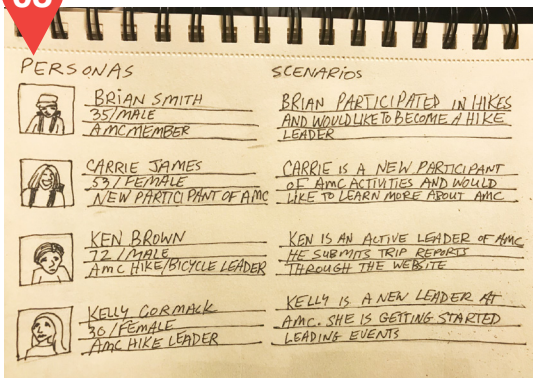 PERSONAS
BRIAN SMITH
35/MALE
AMC MEMBER
CARRIE JAMES
53/FEMALE
NEW PARTICIPANT OF AMC
KEN BROWN
72/MALE
AMC HIKE/BICYCLE LEADER
KELLY CORMACK
36/FEMALE
AMC HIKE LEADER
SCENARIOS
BRIAN PARTICIPATED IN HIKES
AND WOULD LIKE TO BECOME A HIKE
LEADER
CARRIE IS A NEW PARTICIPANT
OF AMC ACTIVITIES AND WOULD
LIKE TO LEARN MORE ABOUT AMC
KEN IS AN ACTIVE LEADER OF AMC
HE SUBMITS TRIP REPORTS
THROUGH THE WEBSITE
KELLY IS A NEW LEADER AT
AMC. SHE IS GETTING STARTED
LEADING EVENTS